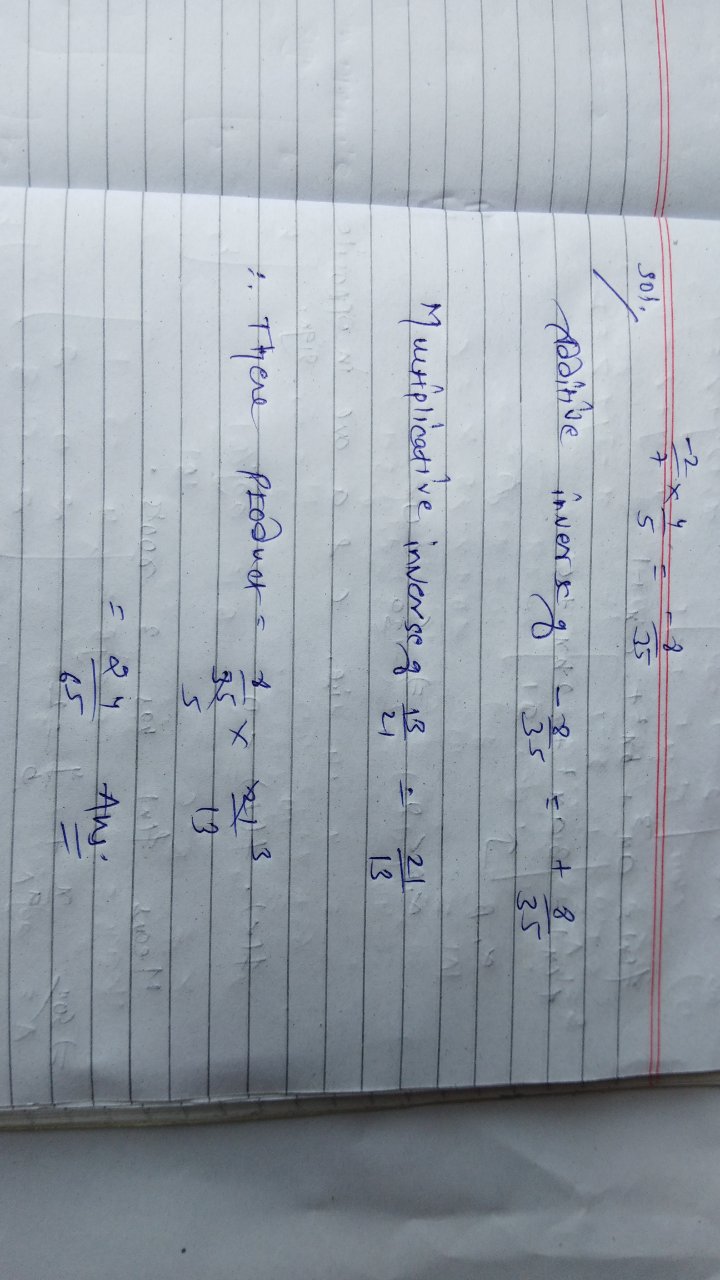 Sol.
-2/7 × 4/5 = -8/35
Additive inverse of -8/35 = + 8/35
Multiplicative inverse of 13/21 = 21/13
∴ There Product = 8/35 5 × 21 3/13
= 24/65 Ans.